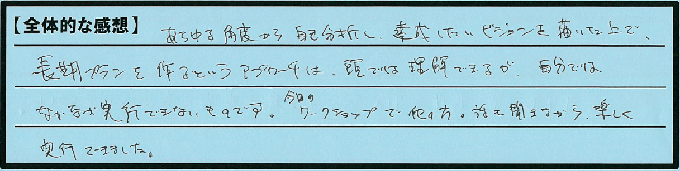 【全体的な感想】 あらゆる角度から自己分析し、達成したいビジョンを描いた上で、
長期プランを作るというアプローチは、頭では理解できるが、自分では
なかなか実行できないものです。今日のワークショップで他の方の話を聞きながら、楽しく
実行できました。